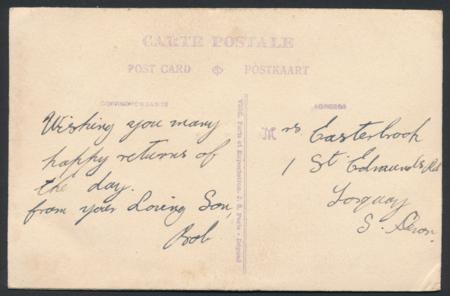 CARTE POSTALE
POST CARD POSTKAART
CORRESPONDANCE
ADRESSE
Wishing you many
happy returns of
the day.
from your Loving Son,
Bob
Mrs Easterbrook
1 St Edmunds Rd
Torquay
S. Devon.